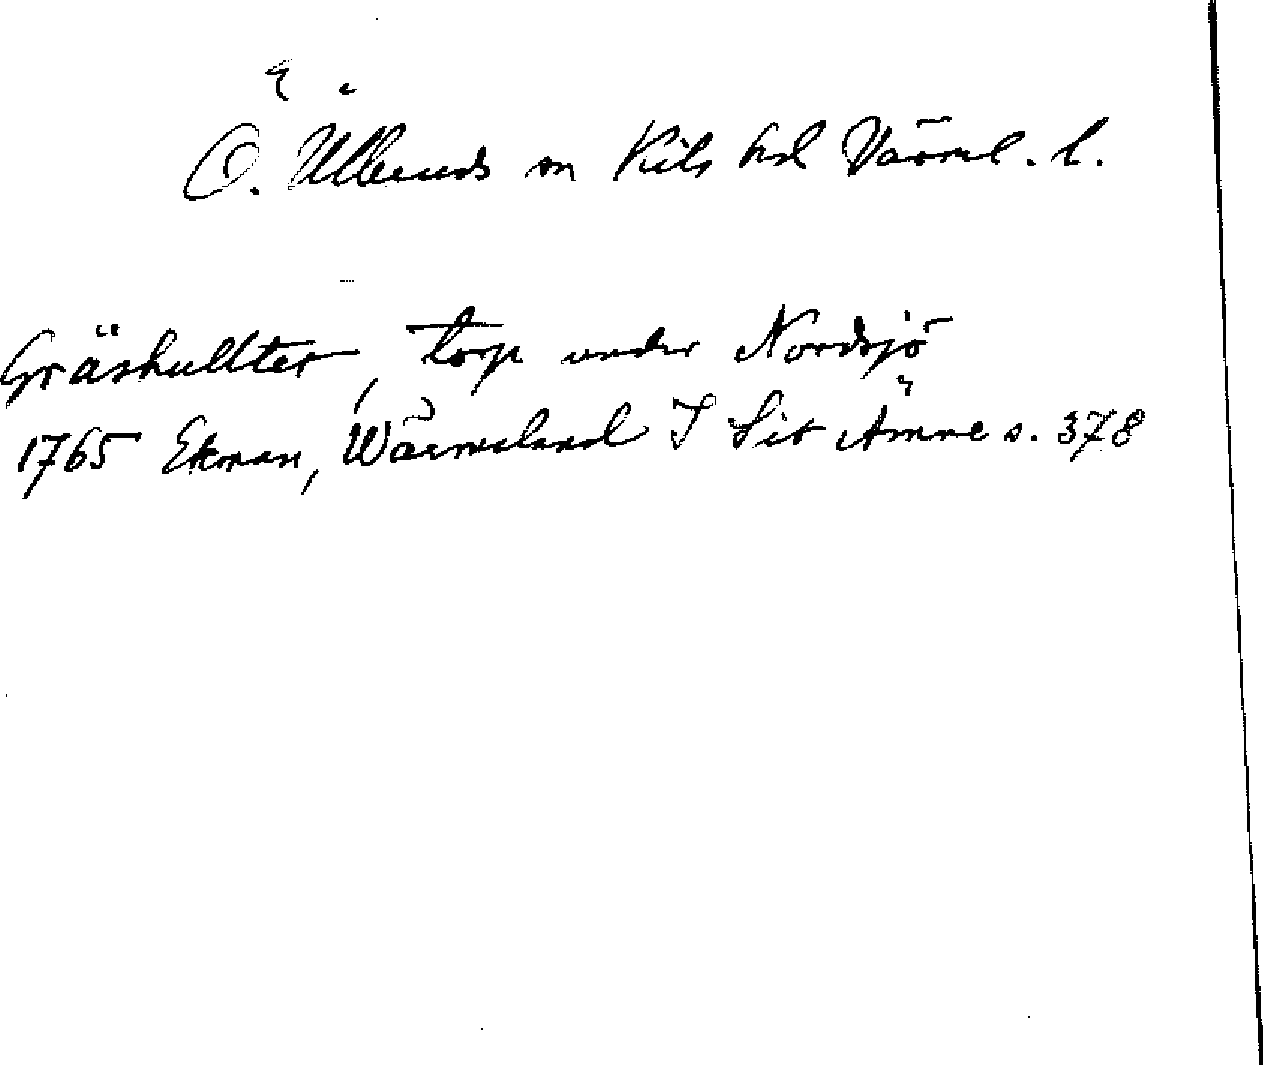 Ö. Ulleruds sn Kils hd Värml. l.
Gräshullter, torp under Nordsjö
1765 Ekman, Wärmeland I Sit Ämne s. 378